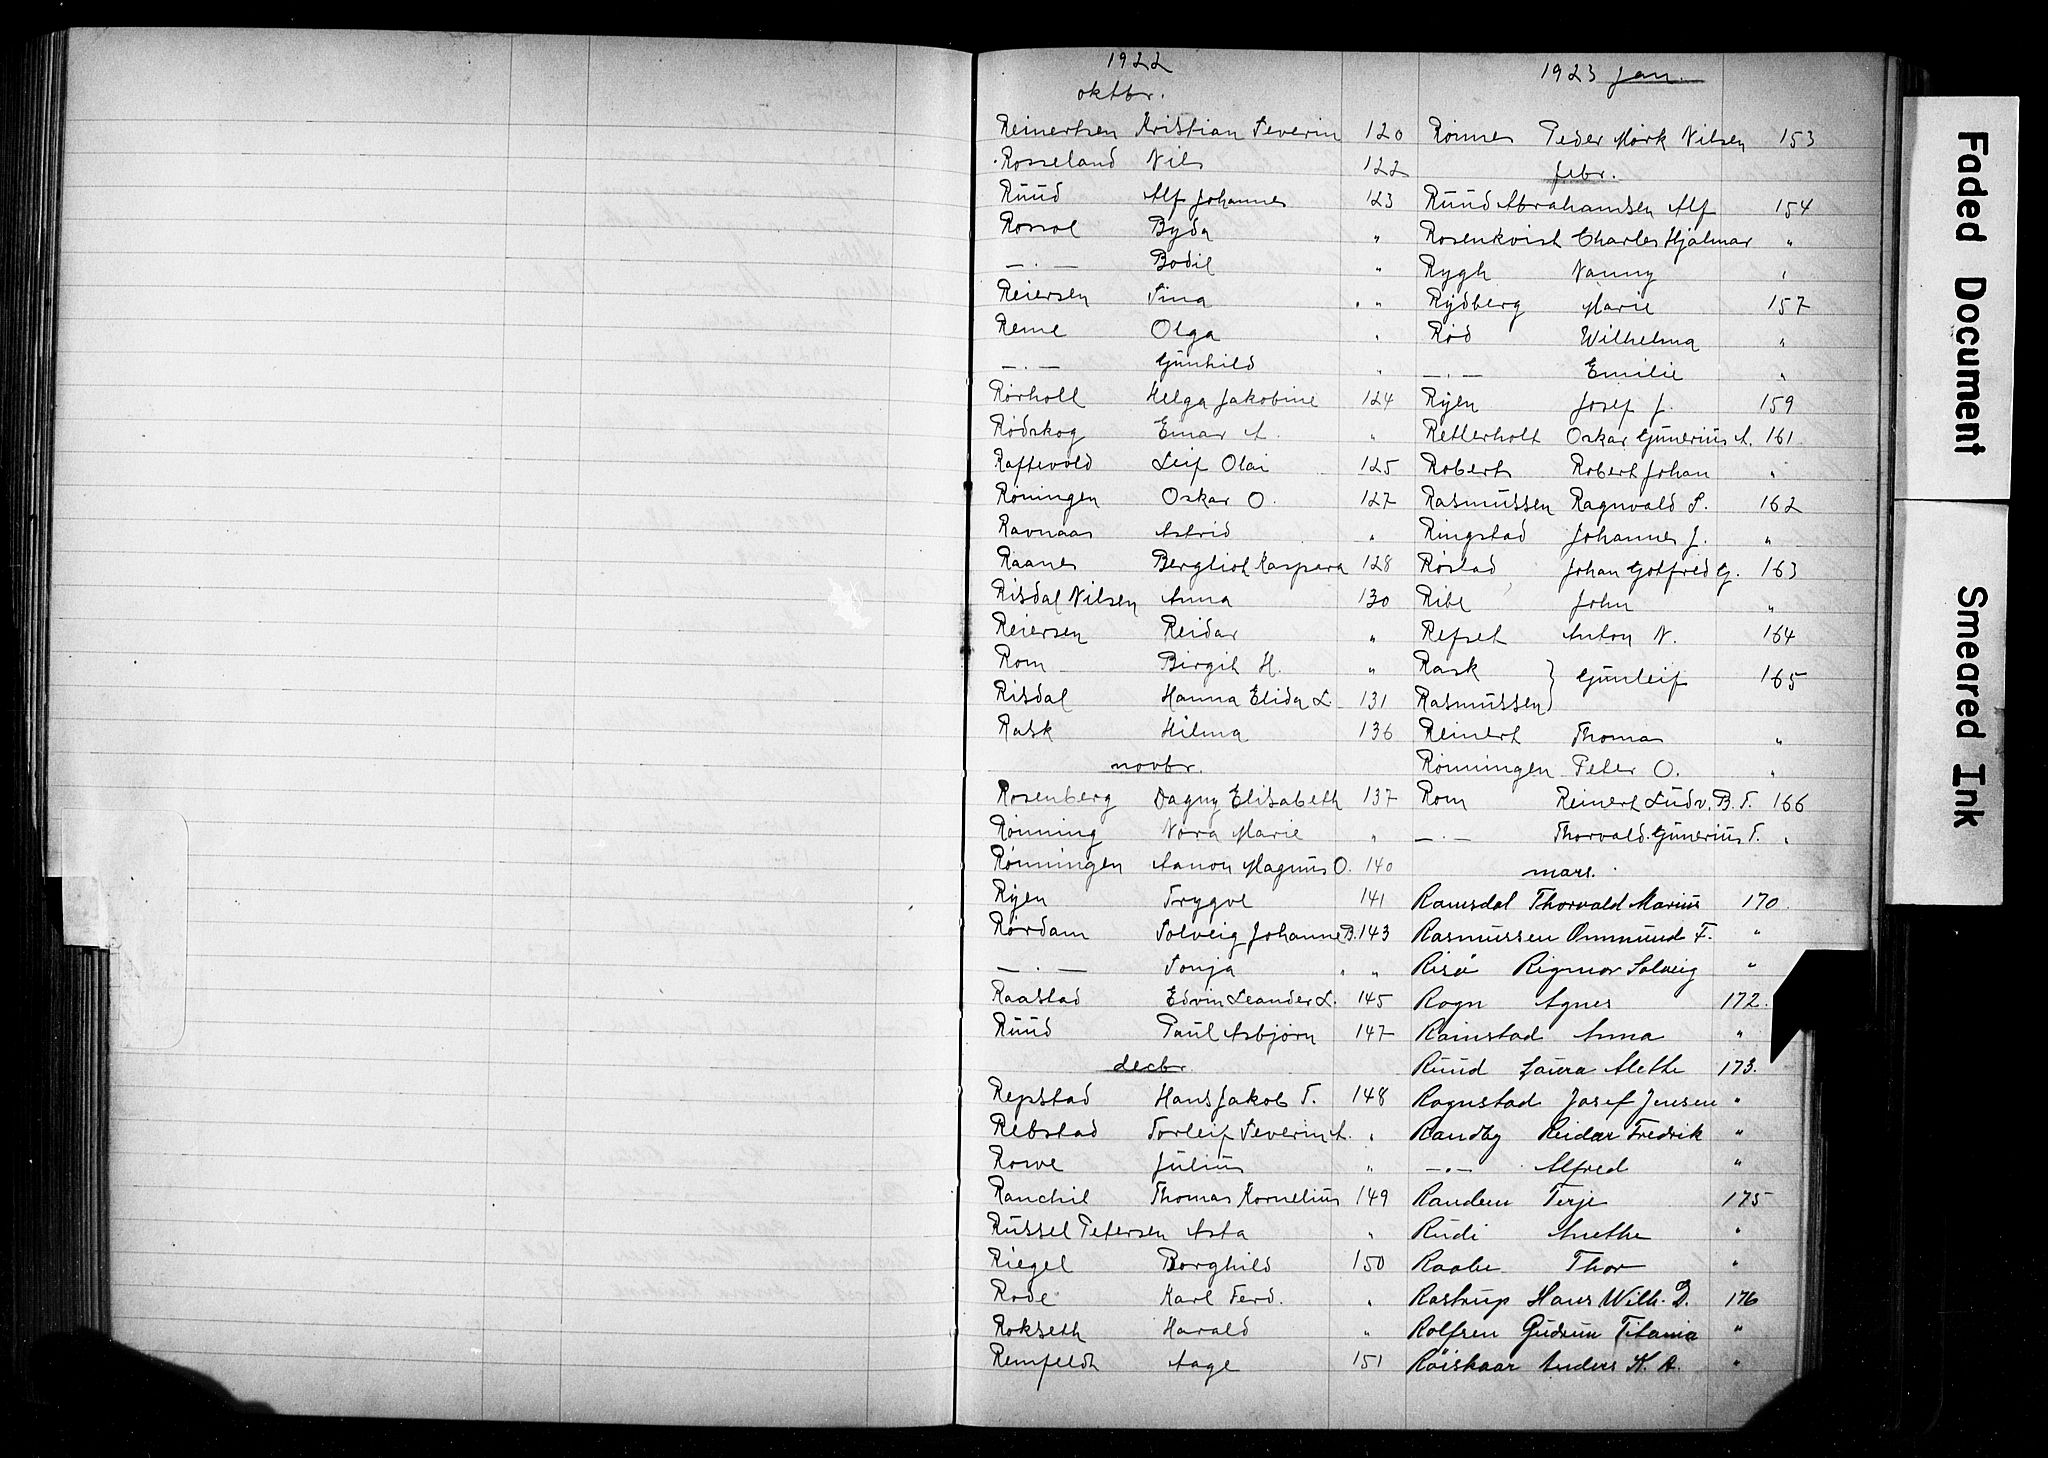 1922
oktbr.
Reinertsen Kristian Severin 120
Rosseland Nils 122
Ruud Alf Johannes 123
Rossol Byda "
— . — Bodil "
Reiersen Sina "
Reme Olga "
— . — Gunhild "
Rørholl Helga Jakobine 124
Rødskog Einar A. "
Raftevold Leif Olai 125
Røningen Oskar O. 127
Ravnaas Astrid "
Raanes Bergliot Kaspara 128
Risdal Nilsen Anna 130
Reiersen Reidar "
Rom Birgit H. "
Risdal Hanna Elida L. 131
Rask Hilma 136
novbr.
Rosenberg Dagny Elisabeth 137
Rønning Nora Marie "
Rønningen Aanon Magnus O. 140
Ryen Trygve 141
Rørdam Solveig Johanne B. 143
— . — Sonja "
Raastad Edvin Leander L. 145
Ruud Paul Asbjørn 147
decbr.
Repstad Hans Jakob T. 148
Rebstad Torleif Severin A. "
Rowe Julius "
Ranchil Thomas Kornelius 149
Russel Petersen Asta "
Riegel Borghild 150
Rode Karl Ferd. "
Rokseth Harald "
Remfeldt Aage 151
1923 jan.
Rønnes Peder Mørk Nilsen 153
febr.
Ruud Abrahamsen Alf 154
Rosenkvist Charles Hjalmar "
Rygh Nanny "
Rydberg Marie 157
Rød Wilhelma "
— . — Emilie "
Ryen Josef J. 159
Retterholt Oskar Gunerius A. 161
Roberts Robert Johan "
Rasmussen Ragnvald S. 162
Ringstad Johannes J. "
Røstad Johan Gotfred G. 163
Ribe John "
Refset Anton N. 164
Rask } Gunleif 165
Rasmussen }
Reinert Thomas "
Rønningen Peter O. "
Rom Reinert Ludv. B. T. 166
— . — Thorvald Gunerius T. "
mars.
Ramsdal Thorvald Marius 170
Rasmussen Ommund F. "
Risø Rigmor Solveig "
Rogn Agnes 172
Ramstad Anna "
Ruud Laura Alethe 173
Rognstad Josef Jensen "
Randby Reidar Fredrik "
— . — Alfred "
Randem Terje 175
Rudi Anethe "
Raabe Thor "
Rostrup Hans Wilh. D. 176
Rolfsen Gudrun Titania "
Røiskaar Anders K. A. "
Faded Document
Smeared Ink